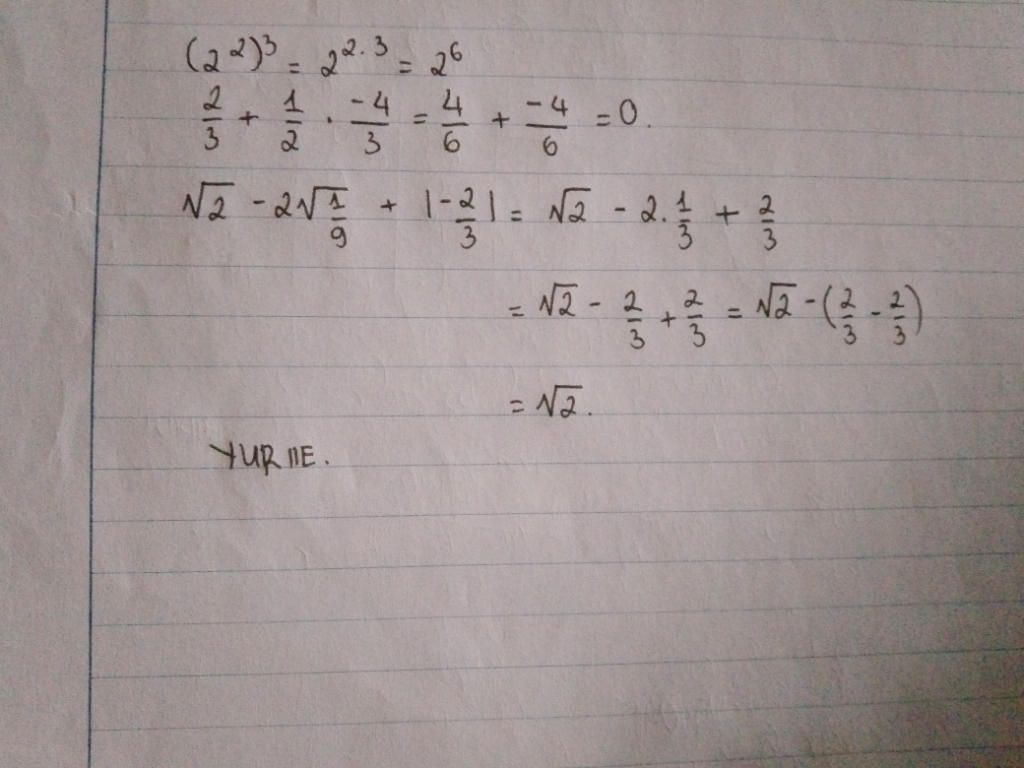 (2²)³ = 2^{2·3} = 2⁶
2/3 + 1/2 · -4/3 = 4/6 + -4/6 = 0.
√2 - 2√(1/9) + |-2/3| = √2 - 2·1/3 + 2/3
= √2 - 2/3 + 2/3 = √2 - (2/3 - 2/3)
= √2.